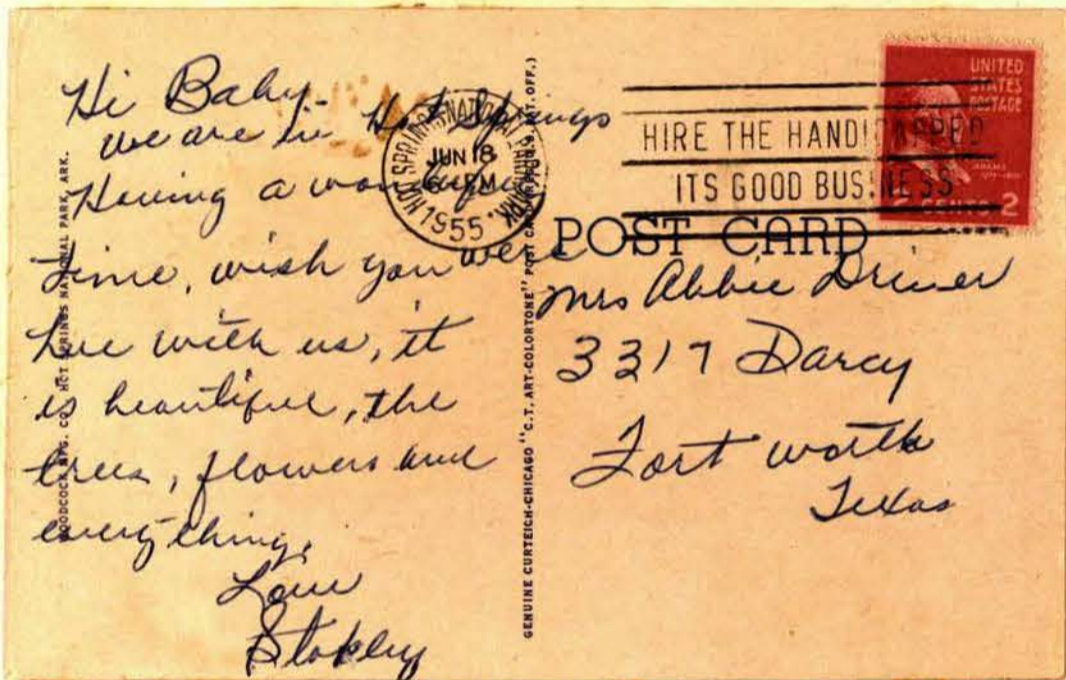 Hi Baby.
we are in Hot Springs
Having a wonderful
time, wish you were
here with us, it
is beautiful, the
trees, flowers and
everything.
Love
Stokely
WOODCOCK MFG. CO., HOT SPRINGS NATIONAL PARK, ARK.
GENUINE CURTEICH-CHICAGO "C.T. ART-COLORTONE" POST CARD (REG. U.S. PAT. OFF.)
HOT SPRINGS NATIONAL PARK, ARK.
JUN 18
PM
1955
HIRE THE HANDICAPPED
ITS GOOD BUSINESS
UNITED
STATES
POSTAGE
ADAMS
2 CENTS 2
POST CARD
Mrs Abbie Driver
3317 Darcy
Fort Worth
Texas